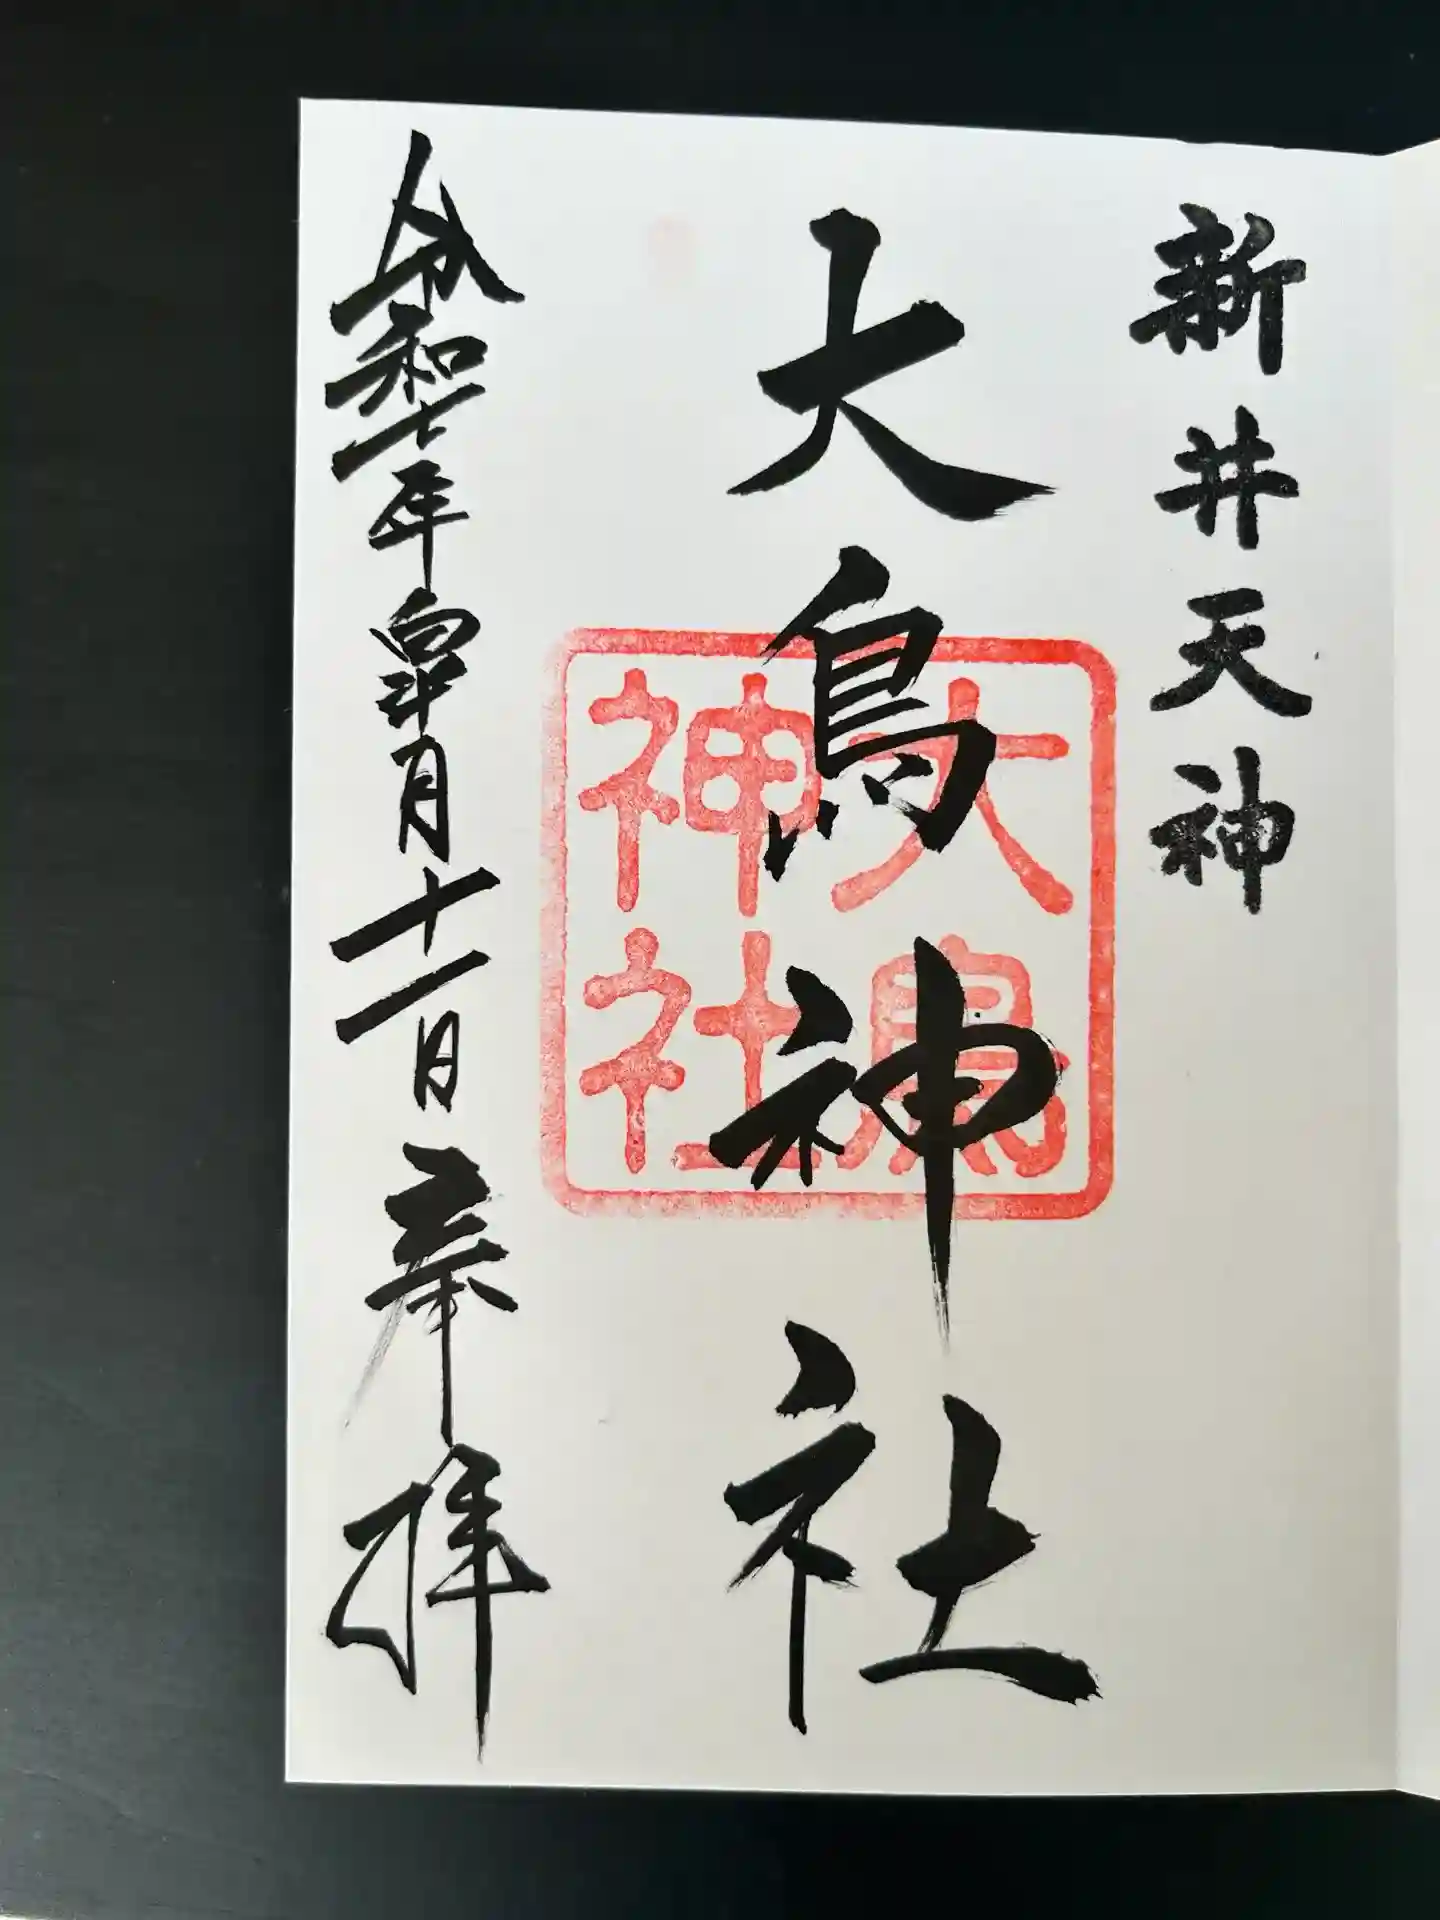 新井天神
大鳥神社
大鳥神社
令和七年皐月十一日奉拝